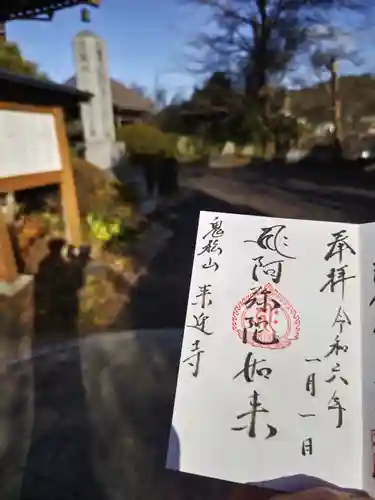 奉拝
令和六年
一月一日
阿弥陀如来
鬼越山
来迎寺